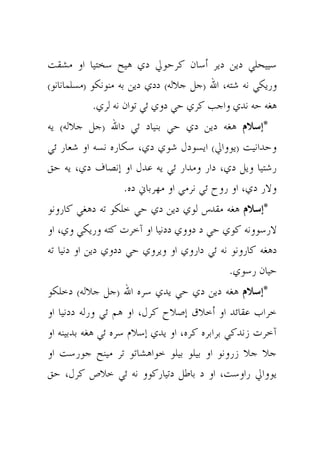 سپيحلي دين دير أسان كرحولي دي هيح سختيا او مشقت
وريكي نه شته، الله (جل جلاله) ددي دين به منونكو (مسلمانانو)
هغه حه ندي واجب كري حي دوي ئي توان نه لري.
*إسلام هغه دين دي حي بنياد ئي دالله (جل جلاله) يه
وحدانيت (يووالي) ايسودل شوي دي، سكاره نسه او شعار ئي
رشتيا ويل دي، دار ومدار ئي يه عدل او إنصاف دي، يه حق
ولار دي، او روح ئي نرمي او مهرباني ده.
*إسلام هغه مقدس لوي دين دي حي خلكو ته دهغي كارونو
لارسوونه كوي حي د دووي ددنيا او آخرت كته وريكي وي، او
دهغه كارونو نه ئي داروي او ويروي حي ددوي دين او دنيا ته
حيان رسوي.
*إسلام هغه دين دي حي يدي سره الله (جل جلاله) دخلكو
خراب عقائد او أخلاق إصلاح كرل، او هم ئي ورله ددنيا او
آخرت زندكي برابره كره، او يدي إسلام سره ئي هغه بدبينه او
جلا جلا زرونو او بيلو بيلو خواهشاتو تر مينح جورست او
يووالي راوست، او د باطل دتياركوو نه ئي خلاص كرل، حق